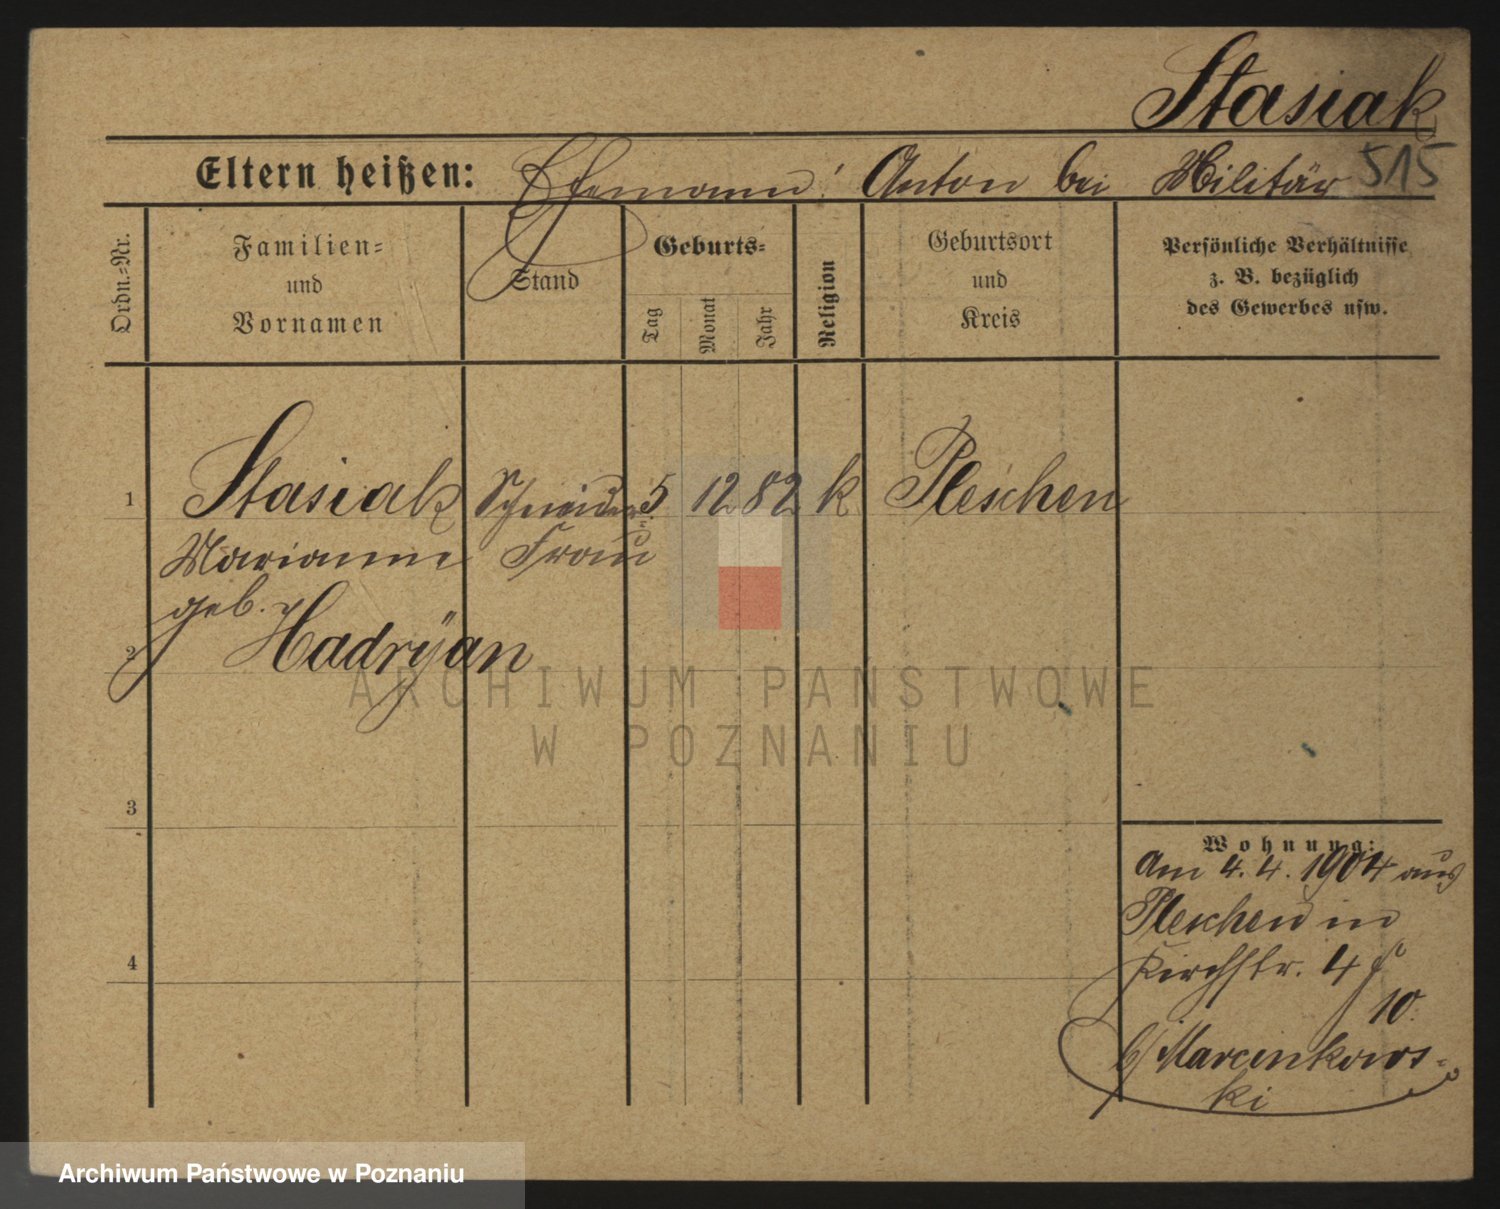 Stasiak
515
Eltern heißen: Ehemann: Anton bei Militär
Ordn.=Nr.
Familien=
und
Vornamen
Stand
Geburts=
Tag
Monat
Jahr
Religion
Geburtsort
und
Kreis
Persönliche Verhältnisse
z. B. bezüglich
des Gewerbes usw.
1 Stasiak Schneider= 5 12 82 k Pleschen
Marianna Frau
geb.
2 Hadryan
ARCHIWUM PAŃSTWOWE
W POZNANIU
3
Wohnung:
am 4.4.1904 aus
Pleschen in
4 Kirchstr. 4
10
b/ Marcinkows-
ki
Archiwum Państwowe w Poznaniu